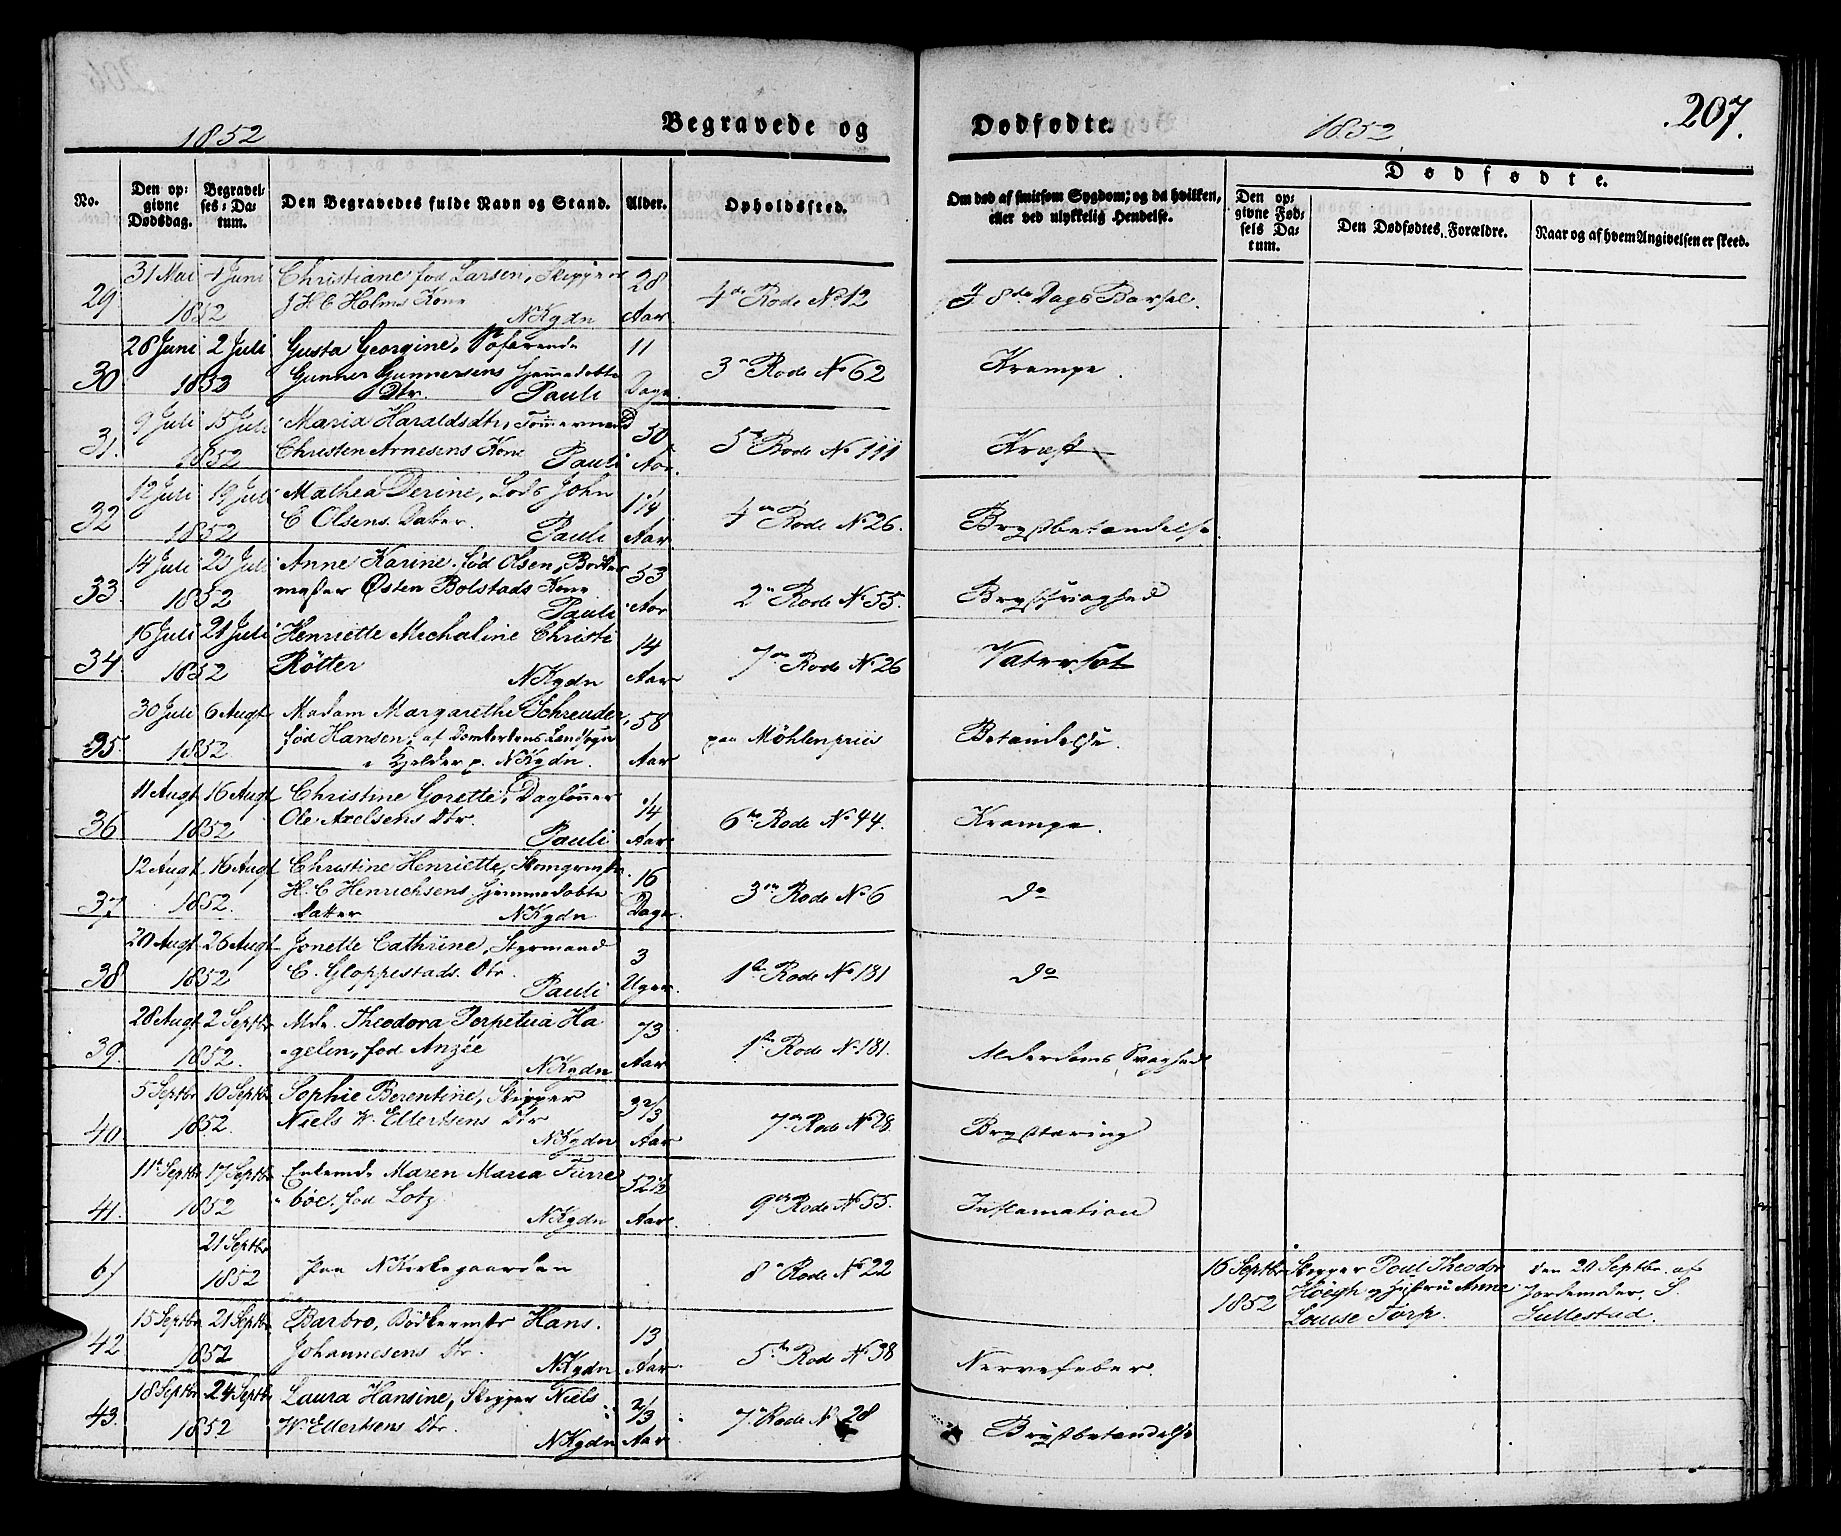 207.
1852
Begravede og
Dødfødte.
1852.
No.
Den opgivne Dødsdag.
Begravelses-Datum.
Den Begravedes fulde Navn og Stand.
Alder.
Opholdssted.
Om død af smitsom Sygdom; og da hvilken, eller ved ulykkelig Hendelse.
Dødfødte.
Den opgivne Fødsels Datum.
Den Dødfødtes Forældre.
Naar og af hvem Angivelsen er skeed.
31 Mai 4 Juni Christiane fød Larsen, Skipper 28
29 1852 J H C Holms Kone NKgdn Aar 4de Rode No 12 J. 8de Dags Barsel
28 Juni 2 Juli Gusta Georgine, Søfarende 11
30 1852 Gunner Gunnersens hjemmedøbte 3e Rode No 62 Krampe.
Dtr Pauli Dage
9 Juli 15 Juli Maria Haraldsdtr, Tømmermand 50
31. 1852 Christen Arnesens Kone Pauli Aar. 5te Rode No 111 Kræft
12 Juli 19 Juli Mathea Derine, Lods John 1 1/4
32 1852 C Olsens Datter. Pauli Aar. 4de Rode No 26. Brystbetændelse.
14 Juli 23 Juli Anne Karine fød Olsen, Bødker 53
33. 1852 mester Østen Bolstads Kone Pauli Aar 2n Rode No 55. Brystsvaghed
16 Juli 21 Juli Henriette Michaline Christi 14
34. 1852 Røtter NKgdn Aar 7de Rode No 26 Vatersot
30 Juli 6 Augt Madam Margarethe Schreuder, 58
35 1852 fød Hansen, af Domkirkens Landsogn paa Möhlenpriis Betændelse.
i Kjelder p. NKgdn. Aar
11 Augt 16 Augt Christine Gorette, Daglønner 1/4
36 1852 Ole Axelsens Dtr. Pauli Aar 6te Rode No 44. Krampe.
12 Augt 16 Augt Christine Henriette, 16
37 1852. H. C Henrichsens hjemmedøbte 3de Rode No 6 do
Datter NKgdn Dage.
20 Augt 26 Augt Jonette Cathrine, Styrmand 3
38 1852 C. Gloppestads Dtr. Pauli Uger. 1ste Rode No 181 do
28 Augt 2 Septbr Mde. Theodora Perpetua Ha 73
39. 1852. gelen, fød Anzée NKgdn Aar 1ste Rode No 181. Alderdoms Svaghed
5 Septbr 10 Septbr Sophie Berentine, Skipper 3 2/3
40 1852. Niels W. Ellertsens Dtr NKgdn Aar 7de Rode No 28. Brysttæring
11 Septbr 17 Septbr Enkemde Maren Maria Furre 52 1/2
41. 1852 böe, fød Lotz NKgdn Aar. 9de Rode No 55. Inflamation
21 Septbr 16 Septbr Skipper Poul Theodor den 20 Septbr. af
6) 1852 paa NKirkegaarden 8e Rode No 22 1852 Höegh og Hustru Anne Jordemoder, S.
Louise Torp. Sullestad.
15 Septbr 21 Septbr Barbro, Bödkermstr Hans. 13
42 1852 Johannesens Dtr. NKgdn Aar 5te Rode No 38 Nervefeber.
18 Septbr 24 Septbr Laura Hansine, Skipper Niels 2/3
43. 1852 W. Ellertsens Dtr. NKgdn Aar 7e Rode No 28 Brystbetændelse